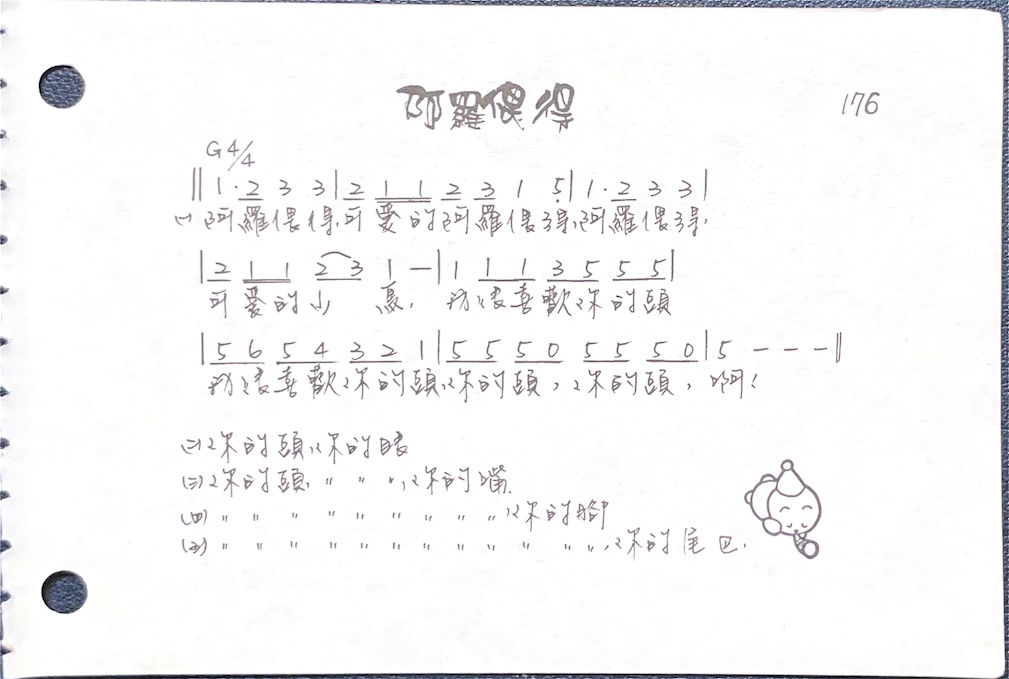 阿羅偎得
176
G 4/4
‖ 1 · 2 3 3 | 2 1 1 2 3 1 5̣ | 1 · 2 3 3 |
(一) 阿羅偎得,可愛的阿羅偎得,阿羅偎得,
| 2 1 1 2 3 1 — | 1 1 1 3 5 5 5 |
可愛的小鳥,我很喜歡你的頭
| 5 6 5 4 3 2 1 | 5 5 5 0 5 5 5 0 | 5 - - - ‖
我很喜歡你的頭,你的頭,你的頭,啊!
(二) 你的頭,你的眼
(三) 你的頭,〃 〃 〃,你的嘴.
(四) 〃 〃 〃 〃 〃 〃 〃 〃 〃,你的腳
(五) 〃 〃 〃 〃 〃 〃 〃 〃 〃 〃 〃 〃,你的尾巴.